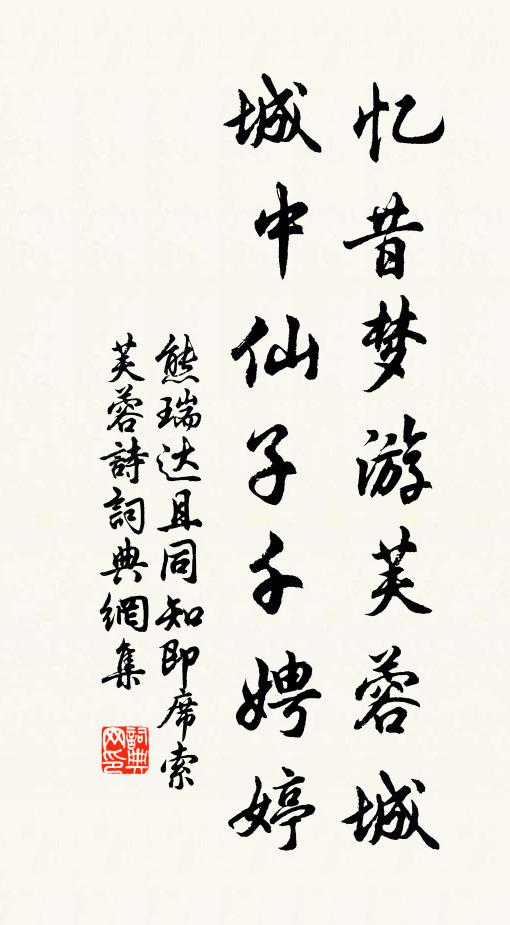 忆昔梦游芙蓉城
城中仙子千娉婷
熊瑞达且同知即席索
芙蓉詩詞典網集
詞典网印